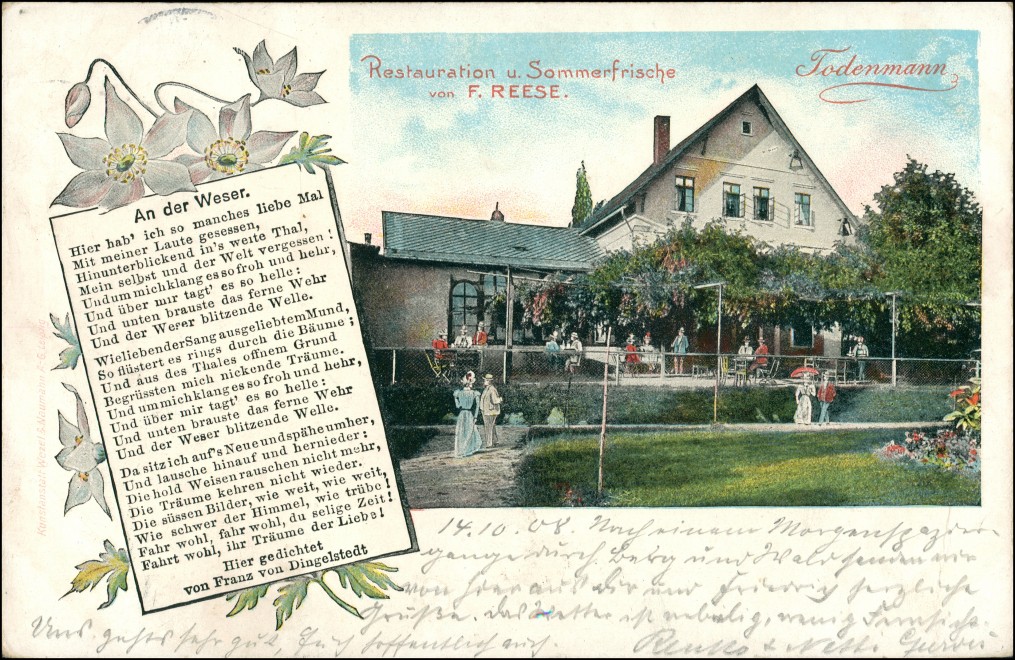 Restauration u. Sommerfrische
von F. REESE.
Todenmann
An der Weser.
Hier hab' ich so manches liebe Mal
Mit meiner Laute gesessen,
Hinunterblickend in's weite Thal,
Mein selbst und der Welt vergessen!
Und um mich klang es so froh und hehr,
Und über mir tagt' es so helle:
Und unten brauste das ferne Wehr
Und der Weser blitzende Welle.
Wie liebender Sang aus geliebtem Mund,
So flüstert es rings durch die Bäume;
Und aus des Thales offnem Grund
Begrüssten mich nickende Träume.
Und um mich klang es so froh und hehr,
Und über mir tagt' es so helle:
Und unten brauste das ferne Wehr
Und der Weser blitzende Welle.
Da sitz ich auf's Neue und spähe umher,
Und lausche hinauf und hernieder:
Die hold Weisen rauschen nicht mehr,
Die Träume kehren nicht wieder.
Die süssen Bilder, wie weit, wie weit,
Wie schwer der Himmel, wie trübe!
Fahr wohl, fahr wohl, du selige Zeit!
Fahrt wohl, ihr Träume der Liebe!
Hier gedichtet
von Franz von Dingelstedt
14.10.08. Nach einem Morgenspazier-
gange durch Berg und Wald senden wir
von hier aus dir und Friedrich herzliche
Grüße. Das Wetter ist nebelig, wenig Fernsicht.
Uns gehts sehr gut, Euch hoffentlich auch.